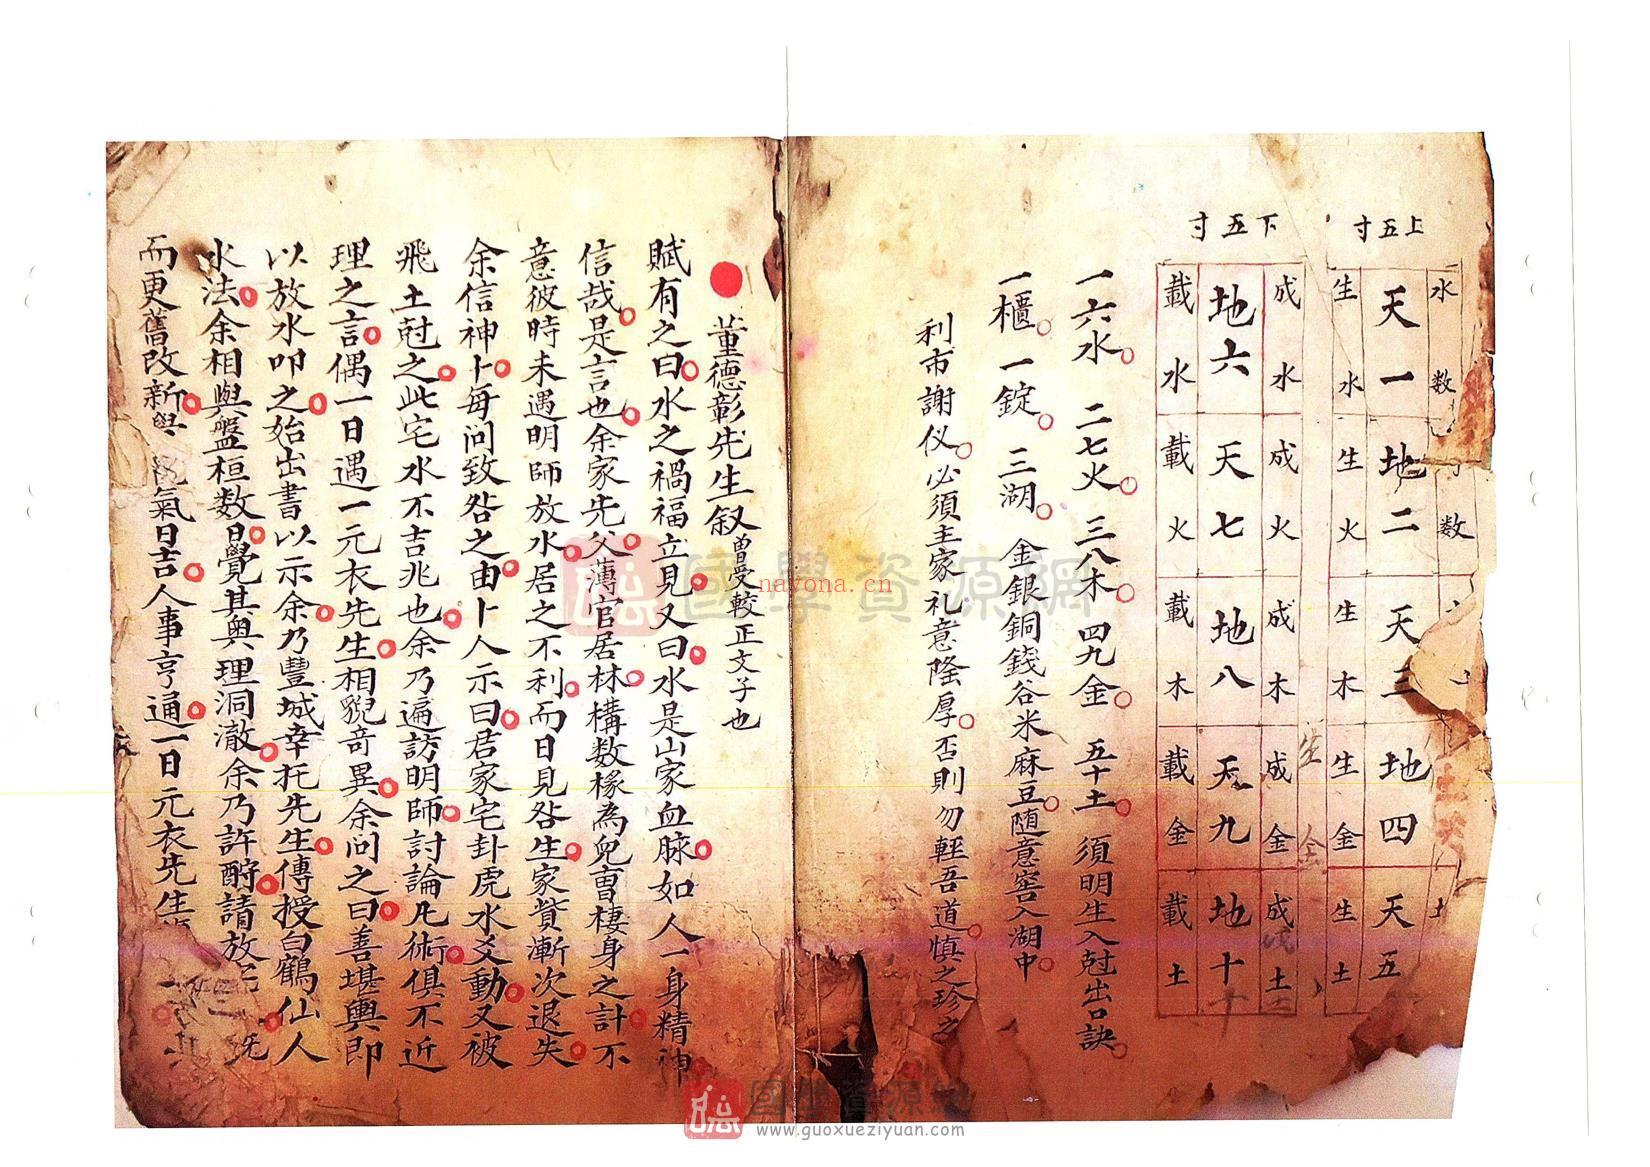 上五寸
水数
数
土
天一 地二 天三 地四 天五
生水 生火 生木 生金 生土
生金
下五寸
成水 成火 成木 成金 成土
地六 天七 地八 天九 地十
載水 載火 載木 載金 載土
一六水 二七火 三八木 四九金 五十土 須明生入尅出口訣
一櫃 一錠 三湖 金銀銅錢谷米麻豆随意窖入湖中
利市謝仪必須主家礼意隆厚否則勿輕吾道慎之珍之
董德彰先生叙曾受較正文子也
賦有之曰水之禍福立見又曰水是山家血脉如人一身精神
信哉是言也余家先父薄官居林構数椽為兒曹棲身之計不
意彼時未遇明師放水居之不利而日見咎生家貲漸次退失
余信神卜每问致咎之由卜人示曰君家宅卦虎水爻動又被
飛土尅之此宅水不吉兆也余乃遍訪明師討論凡術俱不近
理之言偶一日遇一元衣先生相貌奇異余问之曰善堪輿即
以放水叩之始出書以示余乃豐城幸托先生傳授白鶴仙人
水法余相與盤桓数日覺其奥理洞澈余乃許酧請放
而更舊改新 氣日吉人事亨通一日元衣先生
國學資源網
nayona.cn
國學資源網
www.guoxueziyuan.com